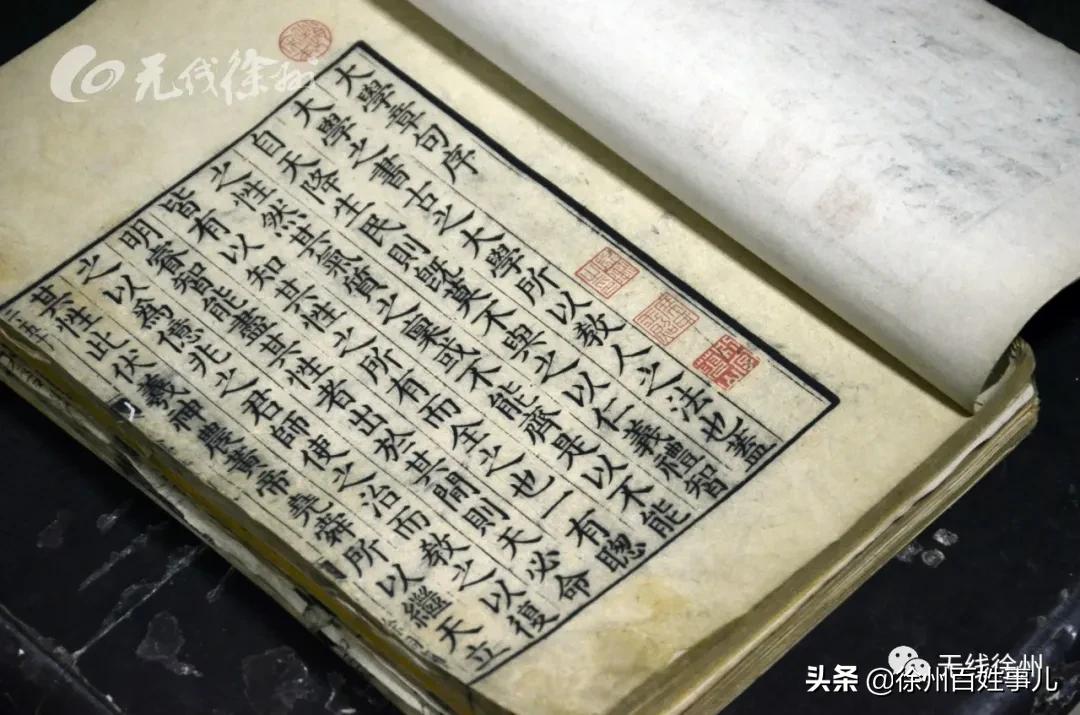 大學章句序
大學之書古之大學所以教人之法也蓋
自天降生民則旣莫不與之以仁義禮智
之性然其氣質之稟或不能齊是以不能
皆有以知其性之所有而全之也一有聰
明睿智能盡其性者出於其間則天必命
之以為億兆之君師使之治而教之以復
其性此伏羲神農黃帝堯舜所以繼天立
无线徐州
无线徐州
头条 @徐州百姓事儿